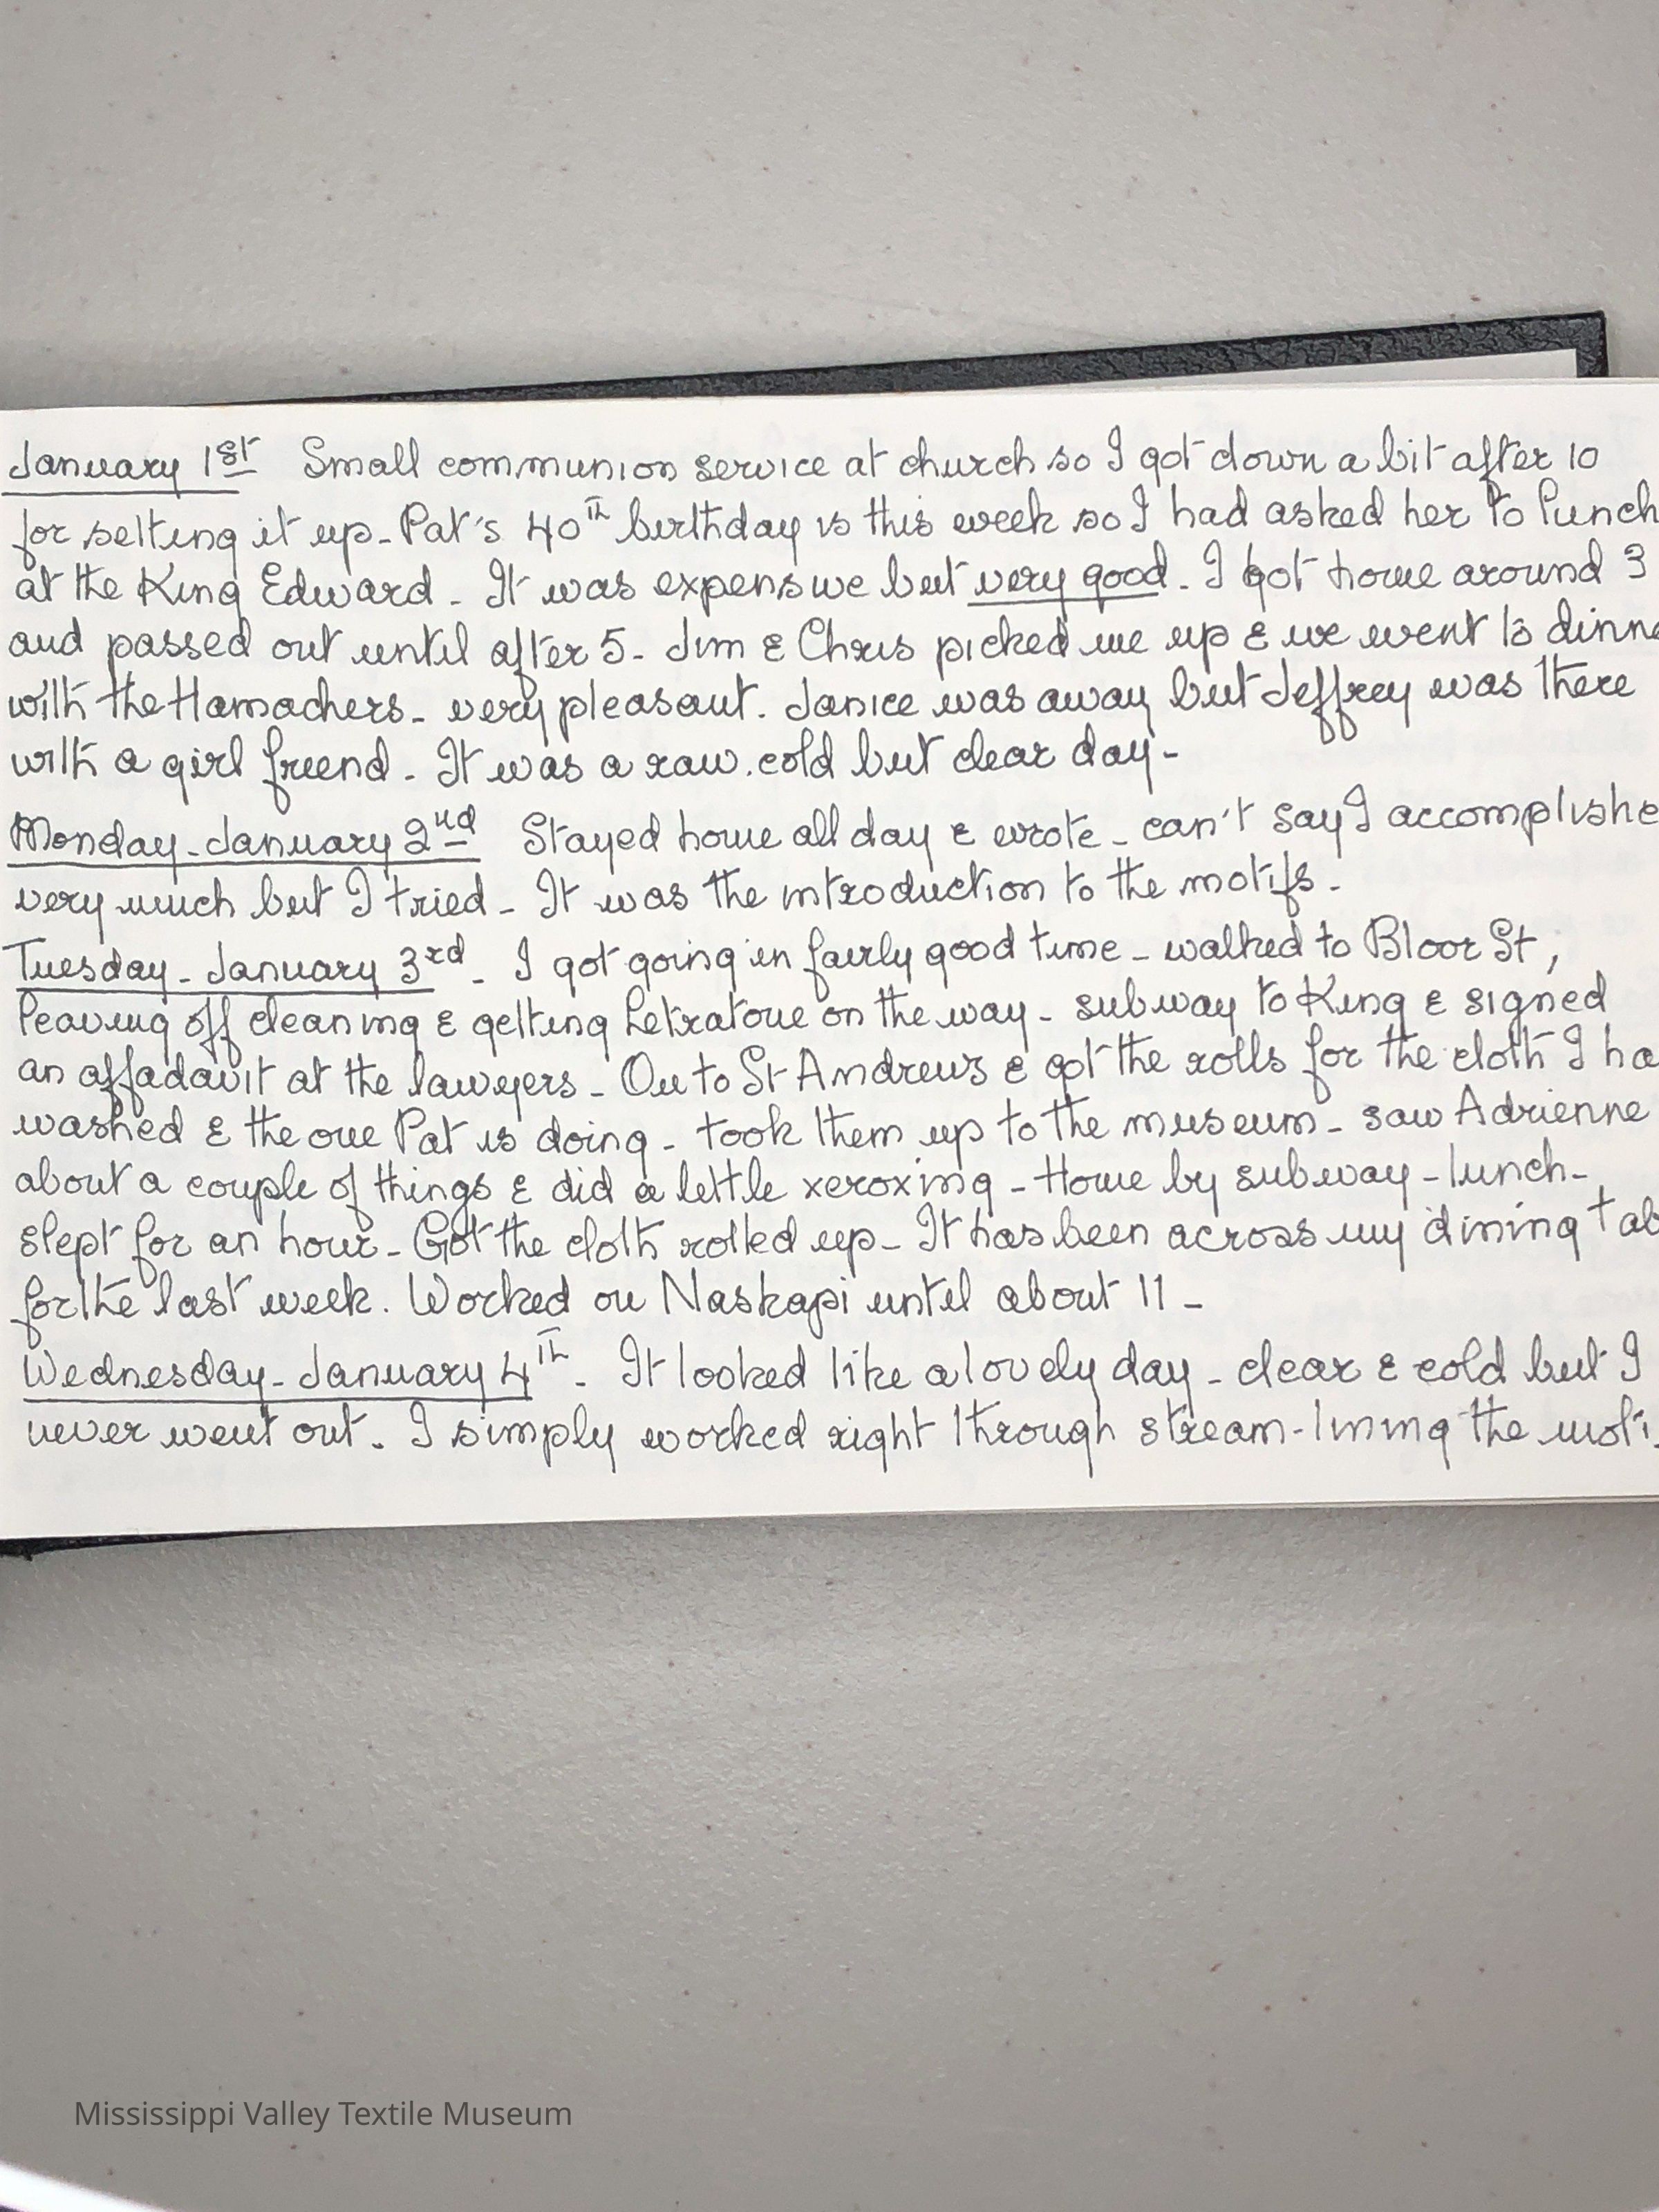 January 1st Small communion service at church so I got down a bit after 10
for setting it up - Pat's 40th birthday is this week so I had asked her to lunch
at the King Edward - It was expensive but very good. I got home around 3
and passed out until after 5 - Jim & Chris picked me up & we went to dinne
with the Hamachers - very pleasant. Janice was away but Jeffrey was there
with a girl friend - It was a raw, cold but clear day -
Monday - January 2nd Stayed home all day & wrote - can't say I accomplishe
very much but I tried - It was the introduction to the motifs -
Tuesday - January 3rd - I got going in fairly good time - walked to Bloor St,
leaving off cleaning & getting Letratone on the way - subway to King & signed
an affadavit at the lawyers - On to St Andrews & got the rolls for the cloth I ha
washed & the one Pat is doing - took them up to the museum - saw Adrienne
about a couple of things & did a little xeroxing - Home by subway - lunch -
slept for an hour - Got the cloth rolled up - It has been across my dining tab
for the last week. Worked on Naskapi until about 11 -
Wednesday - January 4th - It looked like a lovely day - clear & cold but I
never went out. I simply worked right through stream-lining the moti
Mississippi Valley Textile Museum